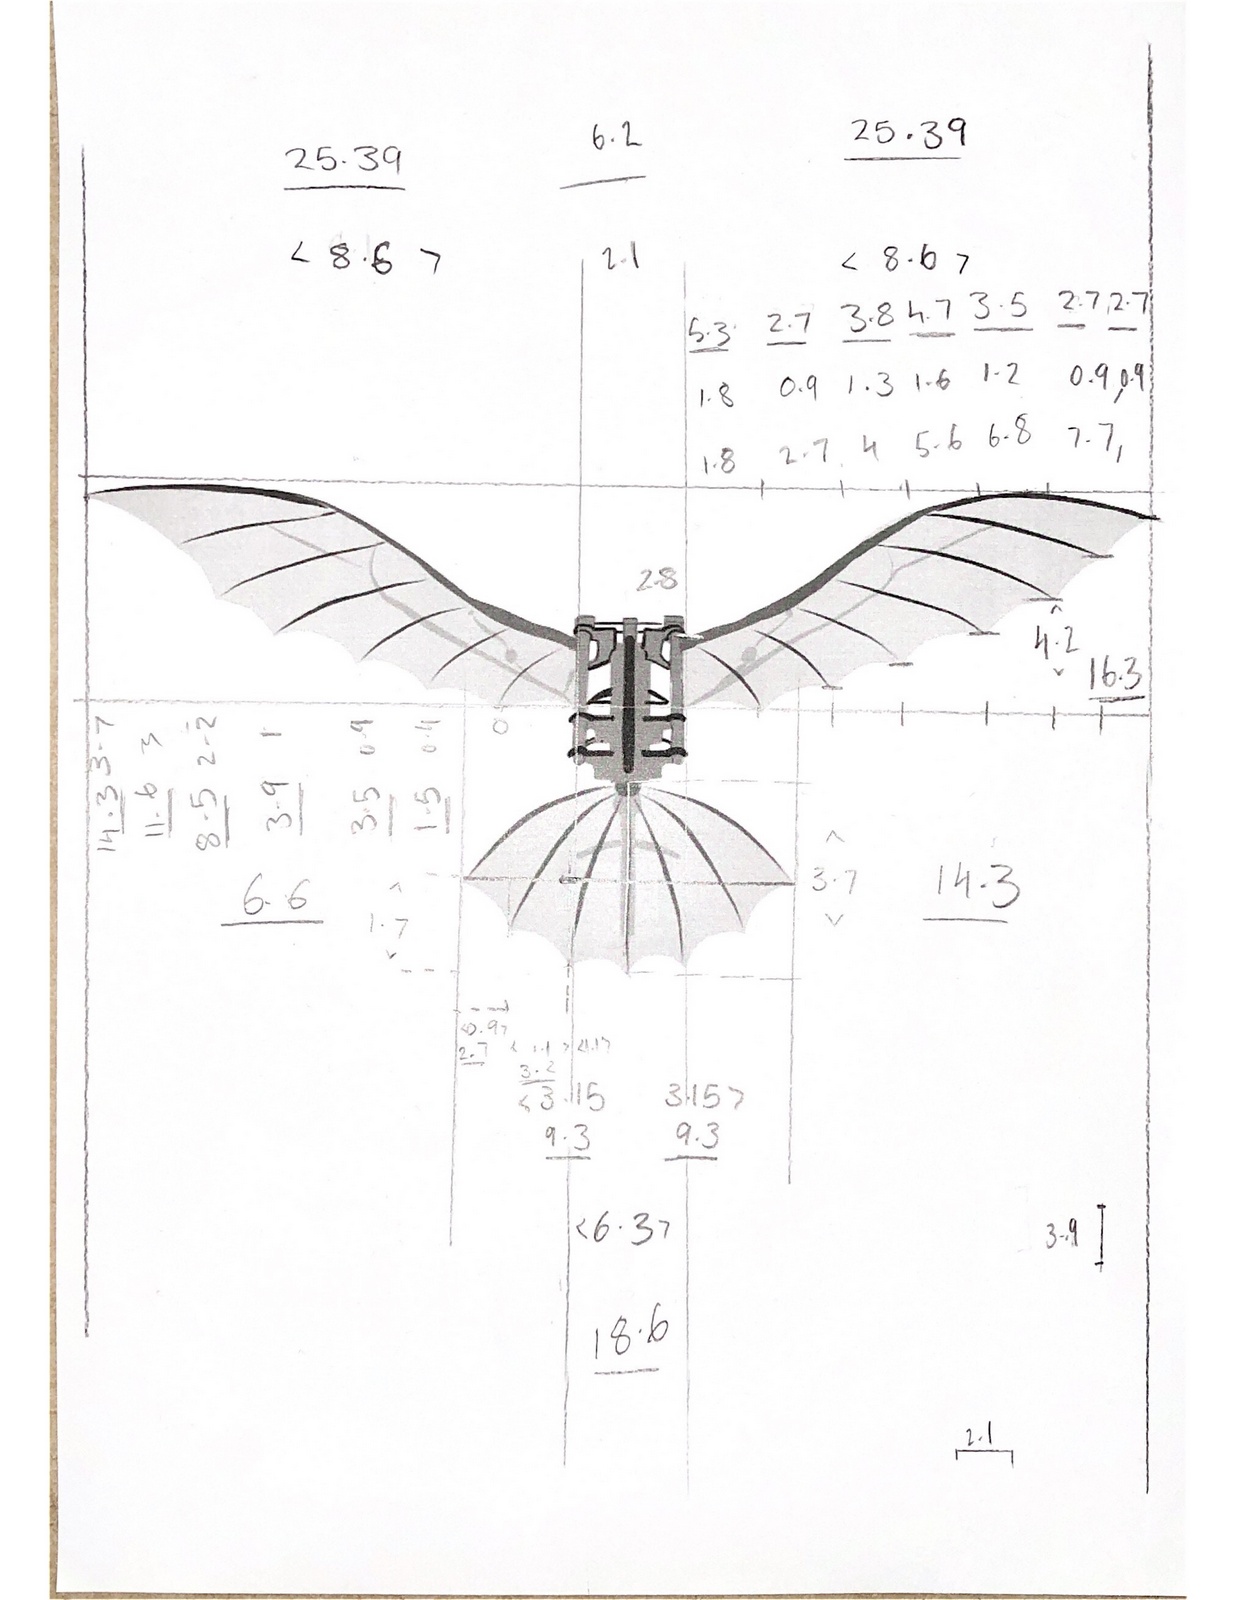 25.39 6.2 25.39
< 8.6 > 2.1 < 8.6 >
5.3 2.7 3.8 4.7 3.5 2.7, 2.7
1.8 0.9 1.3 1.6 1.2 0.9, 0.9
1.8 2.7 4 5.6 6.8 7.7,
2.8
4.2
16.3
3.7 3 2.2 1 0.9 0.4 0
14.3 11.6 8.5 3.9 3.5 1.5
6.6
1.7
3.7
14.3
<0.9>
2.7 < 1.1 > <1.1>
3.2
<3.15 3.15>
9.3 9.3
<6.3>
3.9
18.6
2.1